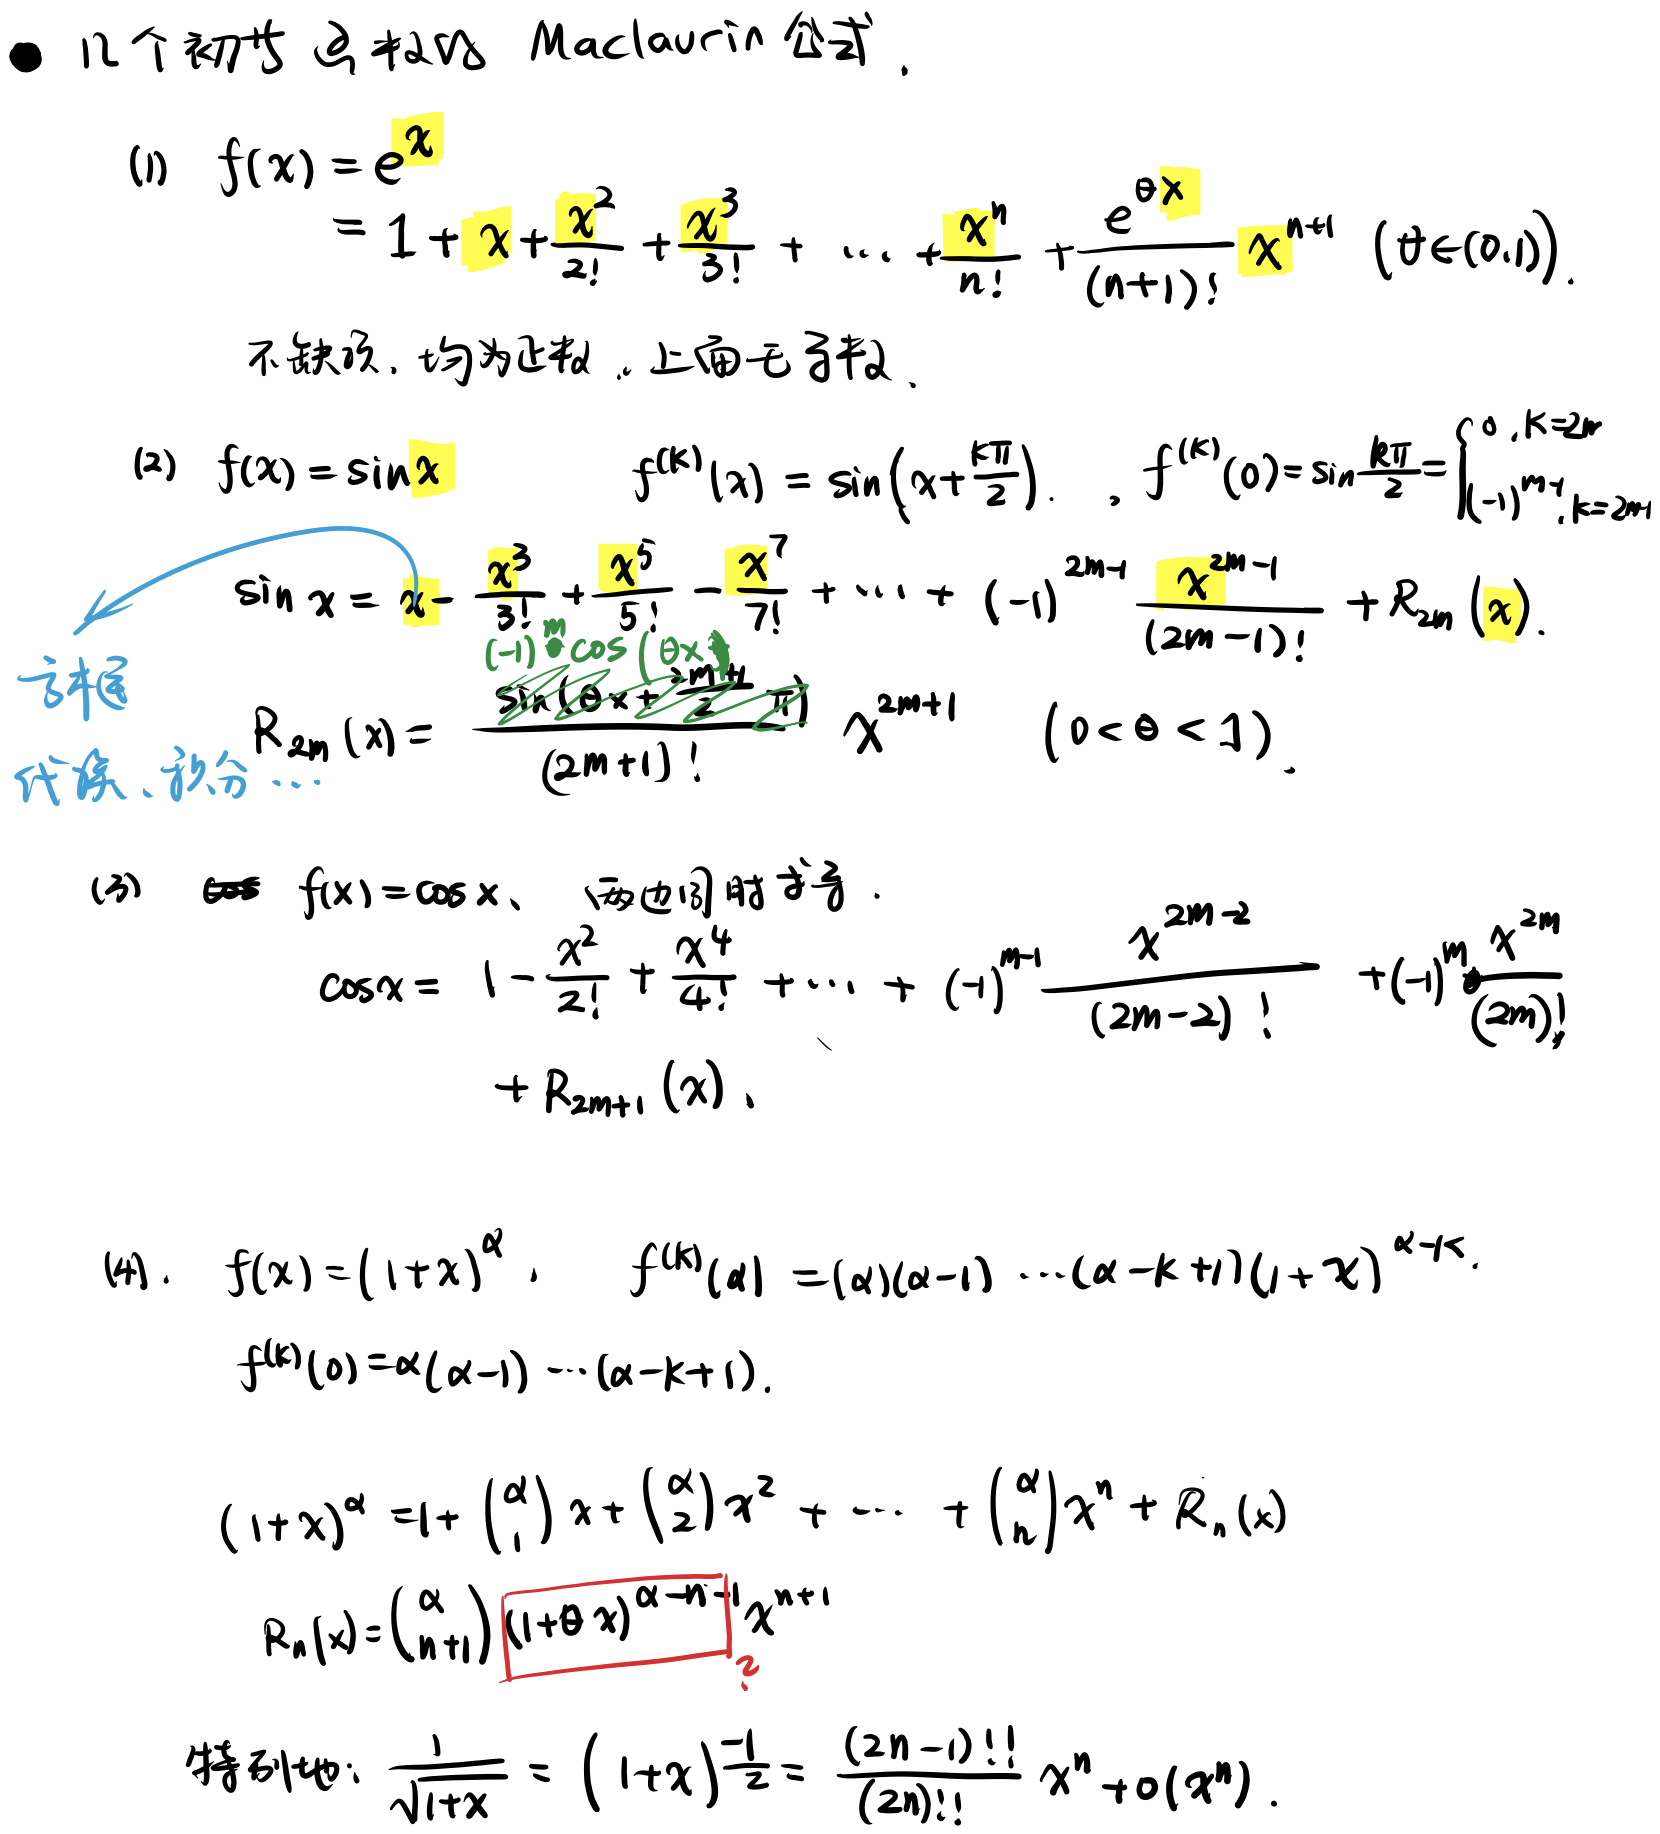 ● 几个初等函数的 Maclaurin 公式.
(1) f(x) = e^x
= 1 + x + x^2/2! + x^3/3! + ... + x^n/n! + e^{θx}/(n+1)! x^{n+1} (θ∈(0,1)).
不缺项, 均为正数, 上面无系数.
(2) f(x) = sin x f^{(k)}(x) = sin(x + kπ/2). , f^{(k)}(0) = sin kπ/2 = { 0, k=2m ; (-1)^{m-1}, k=2m-1
sin x = x - x^3/3! + x^5/5! - x^7/7! + ... + (-1)^{2m-1} x^{2m-1}/(2m-1)! + R_{2m}(x).
(-1)^m cos(θx)
方框
R_{2m}(x) = sin(θx + (2m+1)/2 π)/(2m+1)! x^{2m+1} (0<θ<1).
代换、积分...
(3) cos f(x) = cos x、 两边同时求导.
cos x = 1 - x^2/2! + x^4/4! + ... + (-1)^{m-1} x^{2m-2}/(2m-2)! + (-1)^m x^{2m}/(2m)!
+ R_{2m+1}(x).
(4). f(x) = (1+x)^α. f^{(k)}(α) = (α)(α-1)...(α-k+1)(1+x)^{α-k}.
f^{(k)}(0) = α(α-1)...(α-k+1).
(1+x)^α = 1 + (α 1) x + (α 2) x^2 + ... + (α n) x^n + R_n(x)
R_n(x) = (α n+1) (1+θx)^{α-n-1} x^{n+1}
?
特别地: 1/√(1+x) = (1+x)^{-1/2} = (2n-1)!!/(2n)!! x^n + o(x^n).